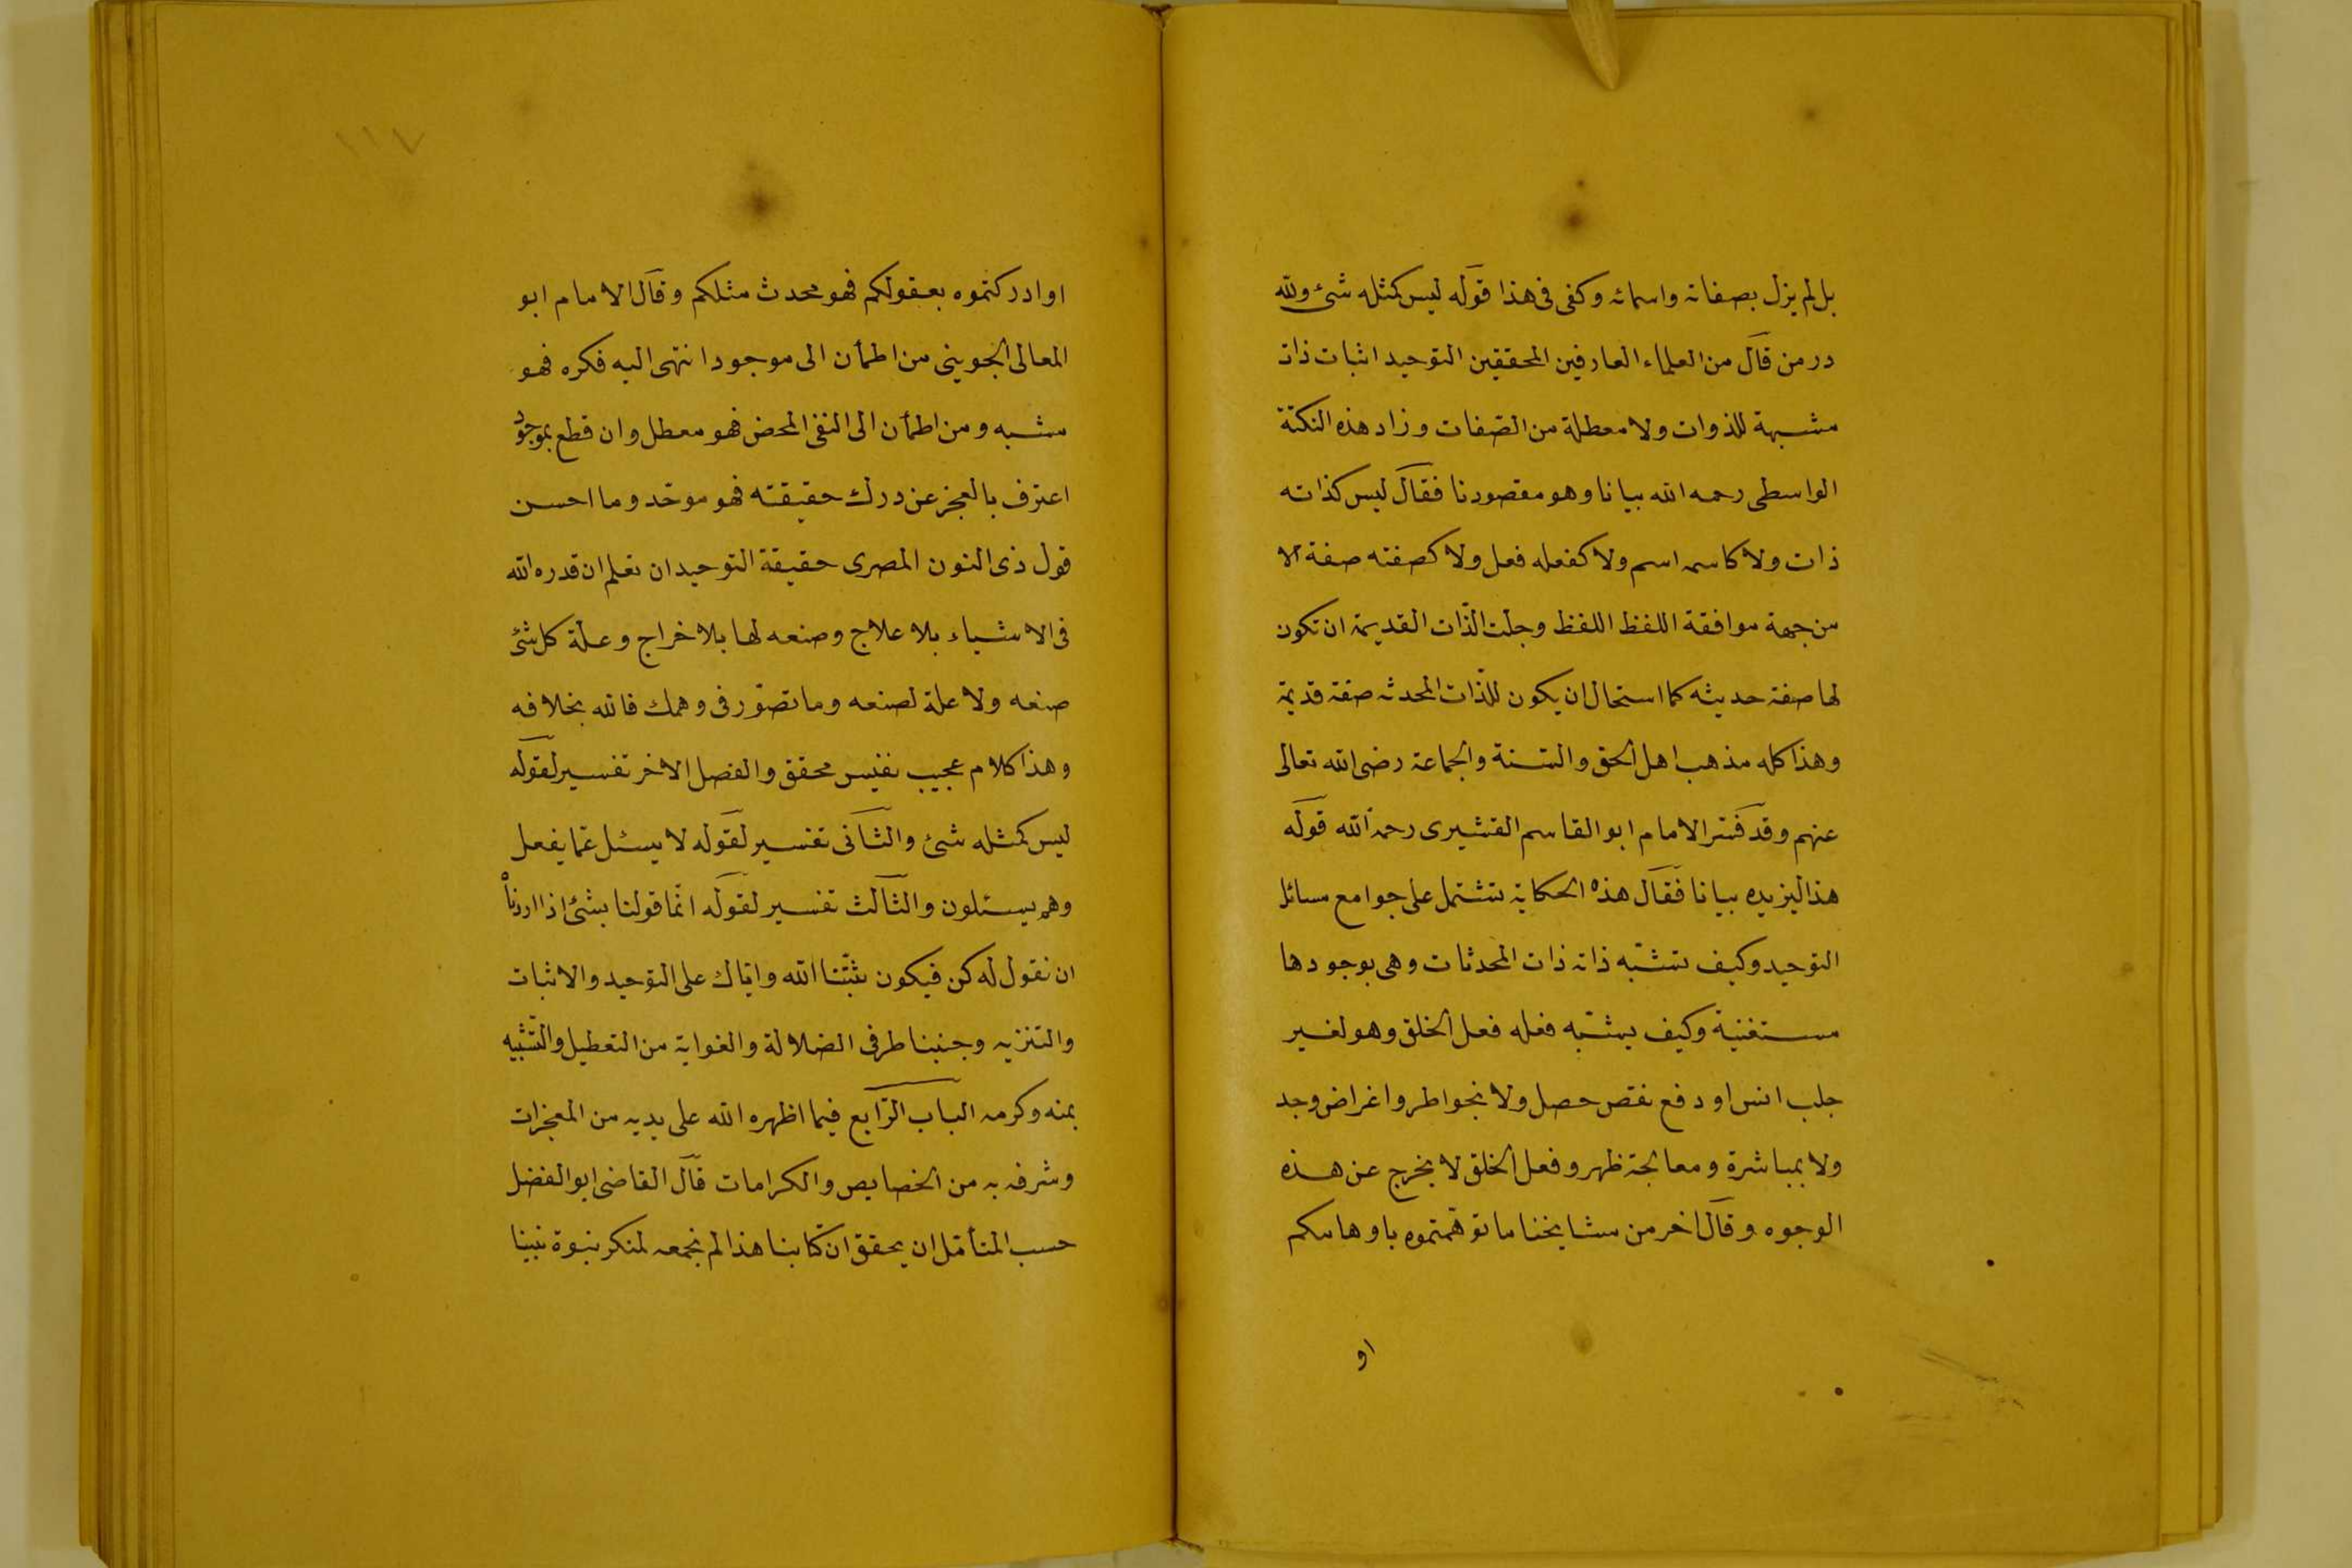 بل لم يزل بصفاته واسمائه وكفى فى هذا قوله ليس كمثله شئ ولله
در من قال من العلماء العارفين المحققين التوحيد اثبات ذات
مشبهة للذوات ولا معطلة من الصّفات وزاد هذه النكتة
الواسطى رحمه الله بيانا وهو مقصودنا فقال ليس كذاته
ذات ولا كاسمه اسم ولا كفعله فعل ولا كصفته صفة الا
من جهة موافقة اللفظ اللفظ وجلت الذّات القديمة ان تكون
لها صفة حديثه كما استحال ان يكون للذّات المحدثه صفة قديمة
وهذا كله مذهب اهل الحق والسّنة والجماعة رضى الله تعالى
عنهم وقد فسّر الامام ابو القاسم القشيرى رحمه الله قوله
هذا ليزيده بيانا فقال هذه الحكاية تشتمل على جوامع مسائل
التوحيد وكيف تشبّه ذاته ذات المحدثات وهى بوجودها
مستغنية وكيف يشبّه فعله فعل الخلق وهو لغير
جلب انس او دفع نقص حصل ولا بخواطر واغراض وجد
ولا بمباشرة ومعالجة ظهر وفعل الخلق لا يخرج عن هذه
الوجوه وقال اخر من مشايخنا ما توهّمتموه باوهامكم
او
١١٧
او ادركتموه بعقولكم فهو محدث مثلكم وقال الامام ابو
المعالى الجوينى من اطمأن الى موجود انتهى اليه فكره فهو
مشبه ومن اطمأن الى النفى المحض فهو معطل وان قطع بموجود
اعترف بالعجز عن درك حقيقته فهو موحّد وما احسن
قول ذى النون المصرى حقيقة التوحيد ان تعلم ان قدره الله
فى الاشياء بلا علاج وصنعه لها بلا خراج وعلة كل شئ
صنعه ولا علة لصنعه وما تصوّر فى وهمك فالله بخلافه
وهذا كلام عجيب نفيس محقق والفصل الاخر تفسير لقوله
ليس كمثله شئ والثانى تفسير لقوله لا يسئل عمّا يفعل
وهم يسئلون والثالث تفسير لقوله انّما قولنا بشئ اذا اردناْ
ان نقول له كن فيكون ثبّتنا الله وايّاك على التوحيد والاثبات
والتنزيه وجنبنا طرفى الضلالة والغواية من التعطيل والتّشبيه
بمنه وكرمه الباب الرّابع فيما اظهره الله على يديه من المعجزات
وشرفه به من الخصايص والكرامات قال القاضى ابو الفضل
حسب المتأمّل ان يحقق ان كتابنا هذا لم نجمعه لمنكر نبوة نبينا